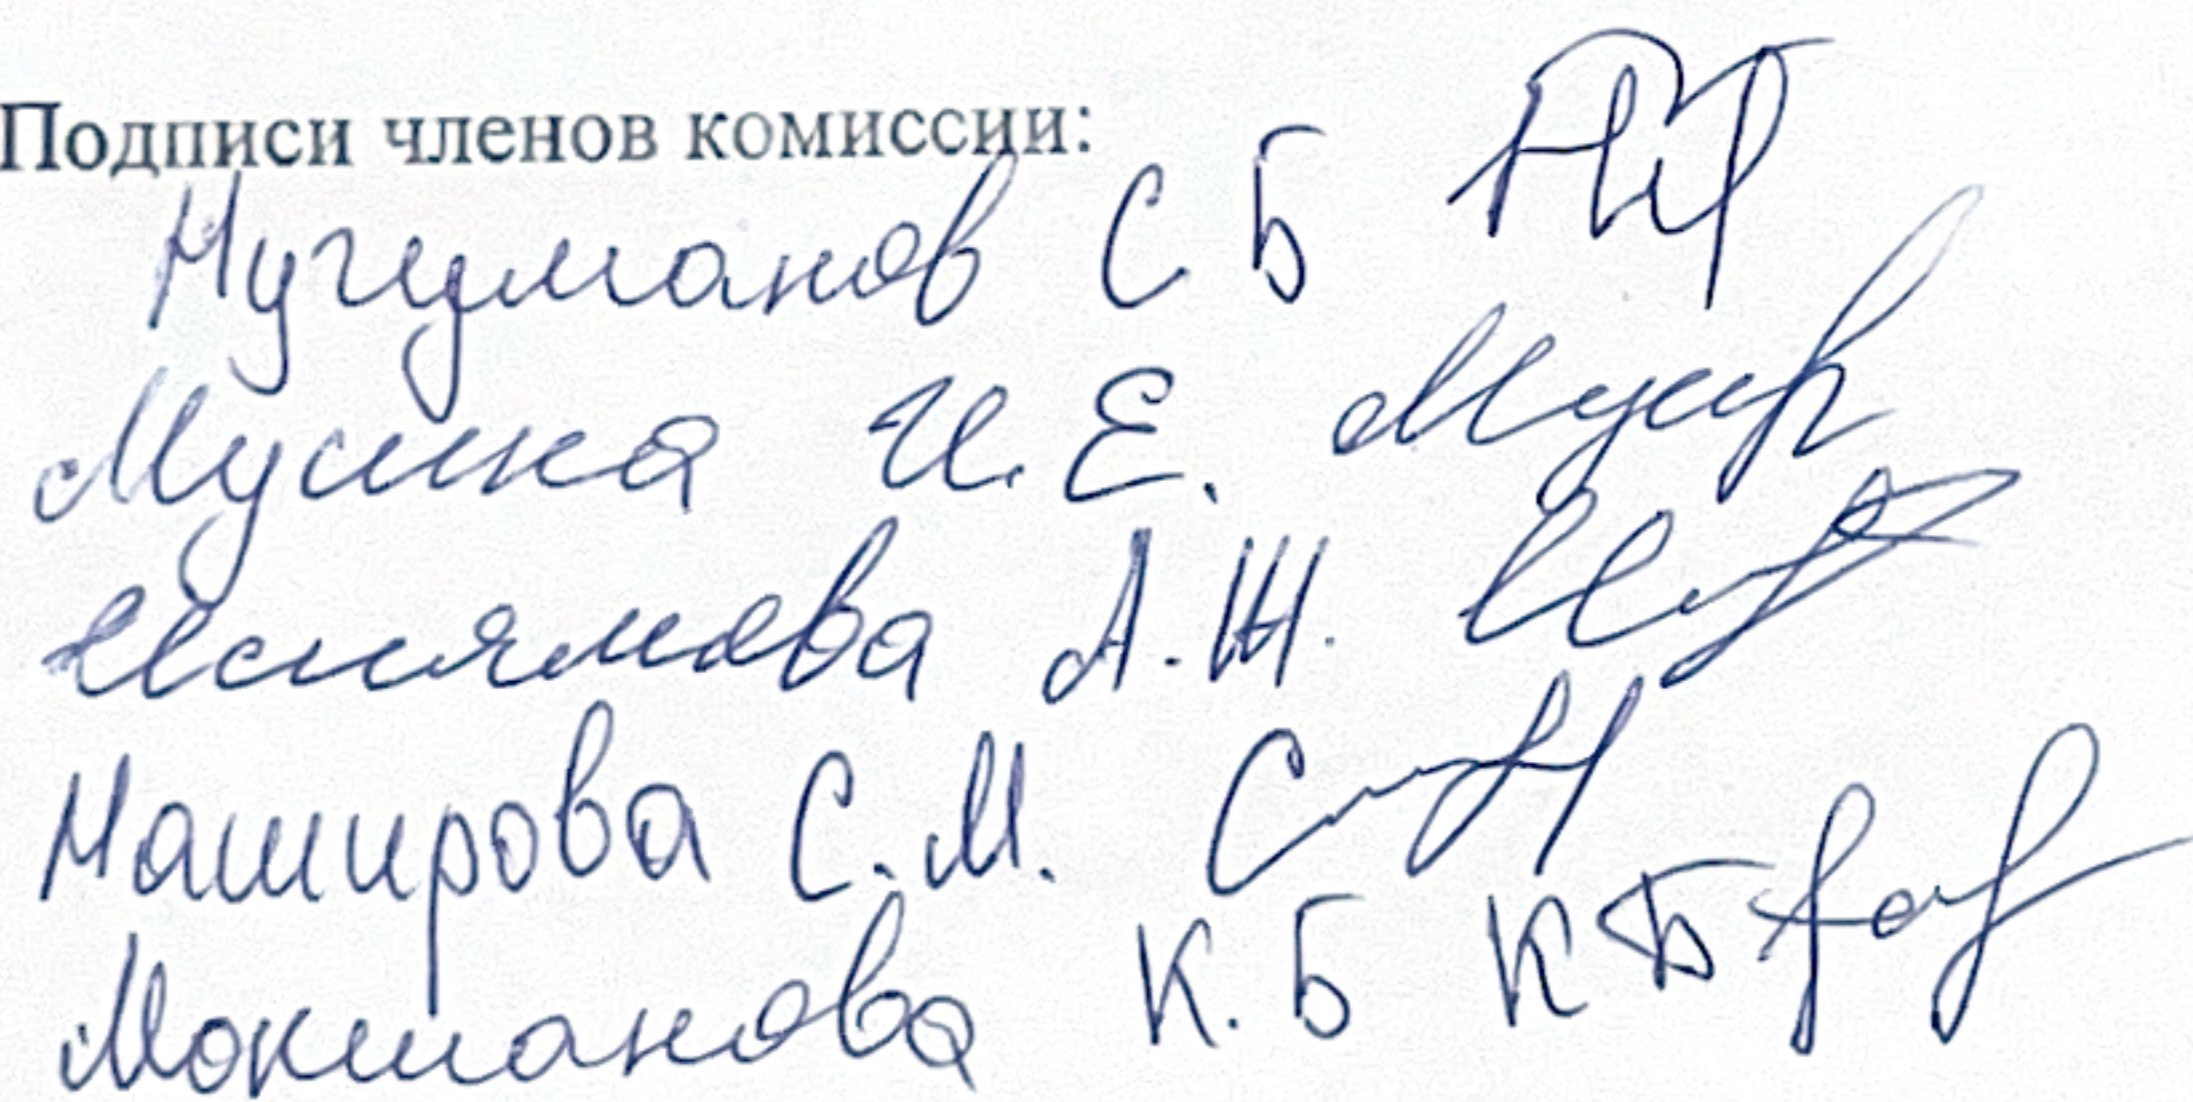 Подписи членов комиссии:
Нугуманов С Б
Мусина И. Е.
Ислямова А. Ж.
Наширова С. М.
Мокшанова К. Б